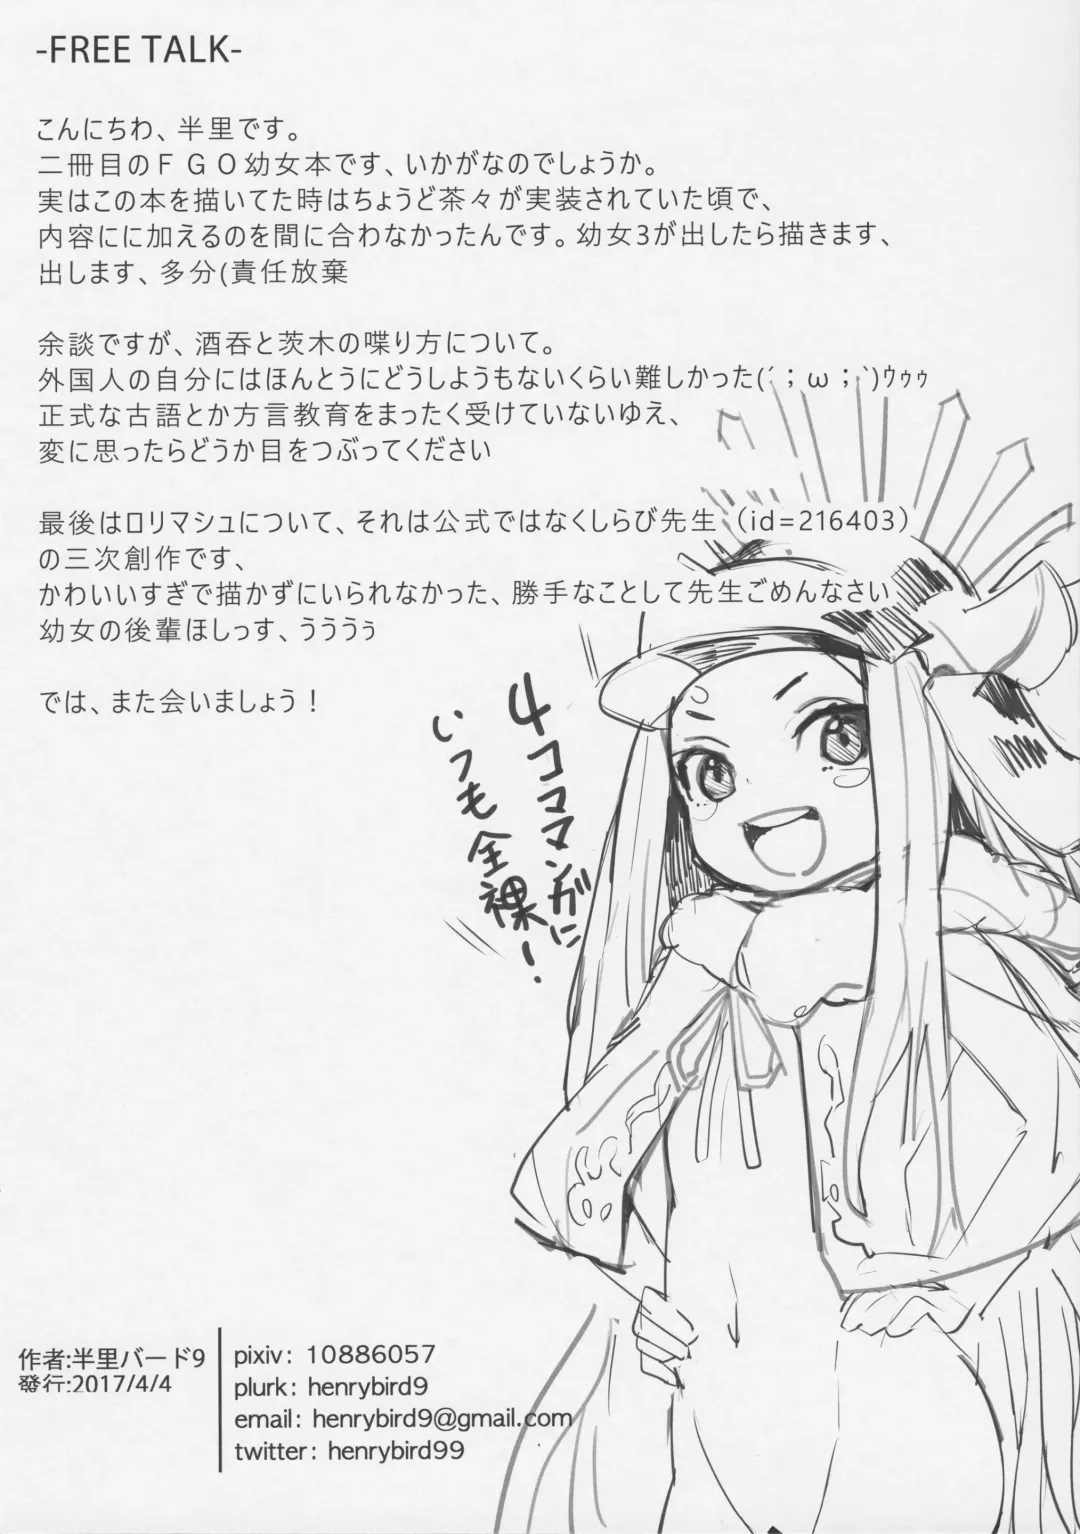 -FREE TALK-
こんにちわ、半里です。
二冊目のＦＧＯ幼女本です、いかがなのでしょうか。
実はこの本を描いてた時はちょうど茶々が実装されていた頃で、
内容にに加えるのを間に合わなかったんです。幼女3が出したら描きます、
出します、多分(責任放棄
余談ですが、酒吞と茨木の喋り方について。
外国人の自分にはほんとうにどうしようもないくらい難しかった(´；ω；`)ｳｩｩ
正式な古語とか方言教育をまったく受けていないゆえ、
変に思ったらどうか目をつぶってください
最後はロリマシュについて、それは公式ではなくしらび先生（id=216403）
の三次創作です、
かわいいすぎで描かずにいられなかった、勝手なことして先生ごめんなさい
幼女の後輩ほしっす、うううぅ
では、また会いましょう！
4コママンガに
いつも全裸！
作者:半里バード9
發行:2017/4/4
pixiv: 10886057
plurk: henrybird9
email: henrybird9@gmail.com
twitter: henrybird99